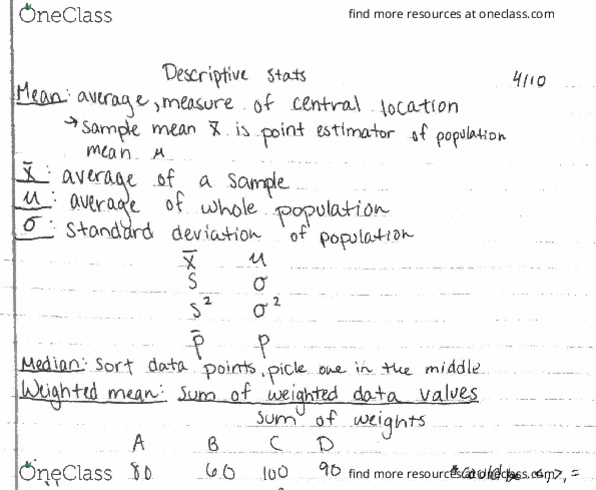 OneClass find more resources at oneclass.com
Descriptive Stats 4/10
Mean: average, measure of central location
→ sample mean x̄ is point estimator of population
mean μ
x̄: average of a sample
μ: average of whole population
σ: standard deviation of population
x̄ μ
s σ
s² σ²
p̄ p
Median: Sort data points, pick one in the middle
Weighted mean: Sum of weighted data values
sum of weights
A B C D
OneClass 80 60 100 90 find more resources at oneclass.com * could be <, >, =